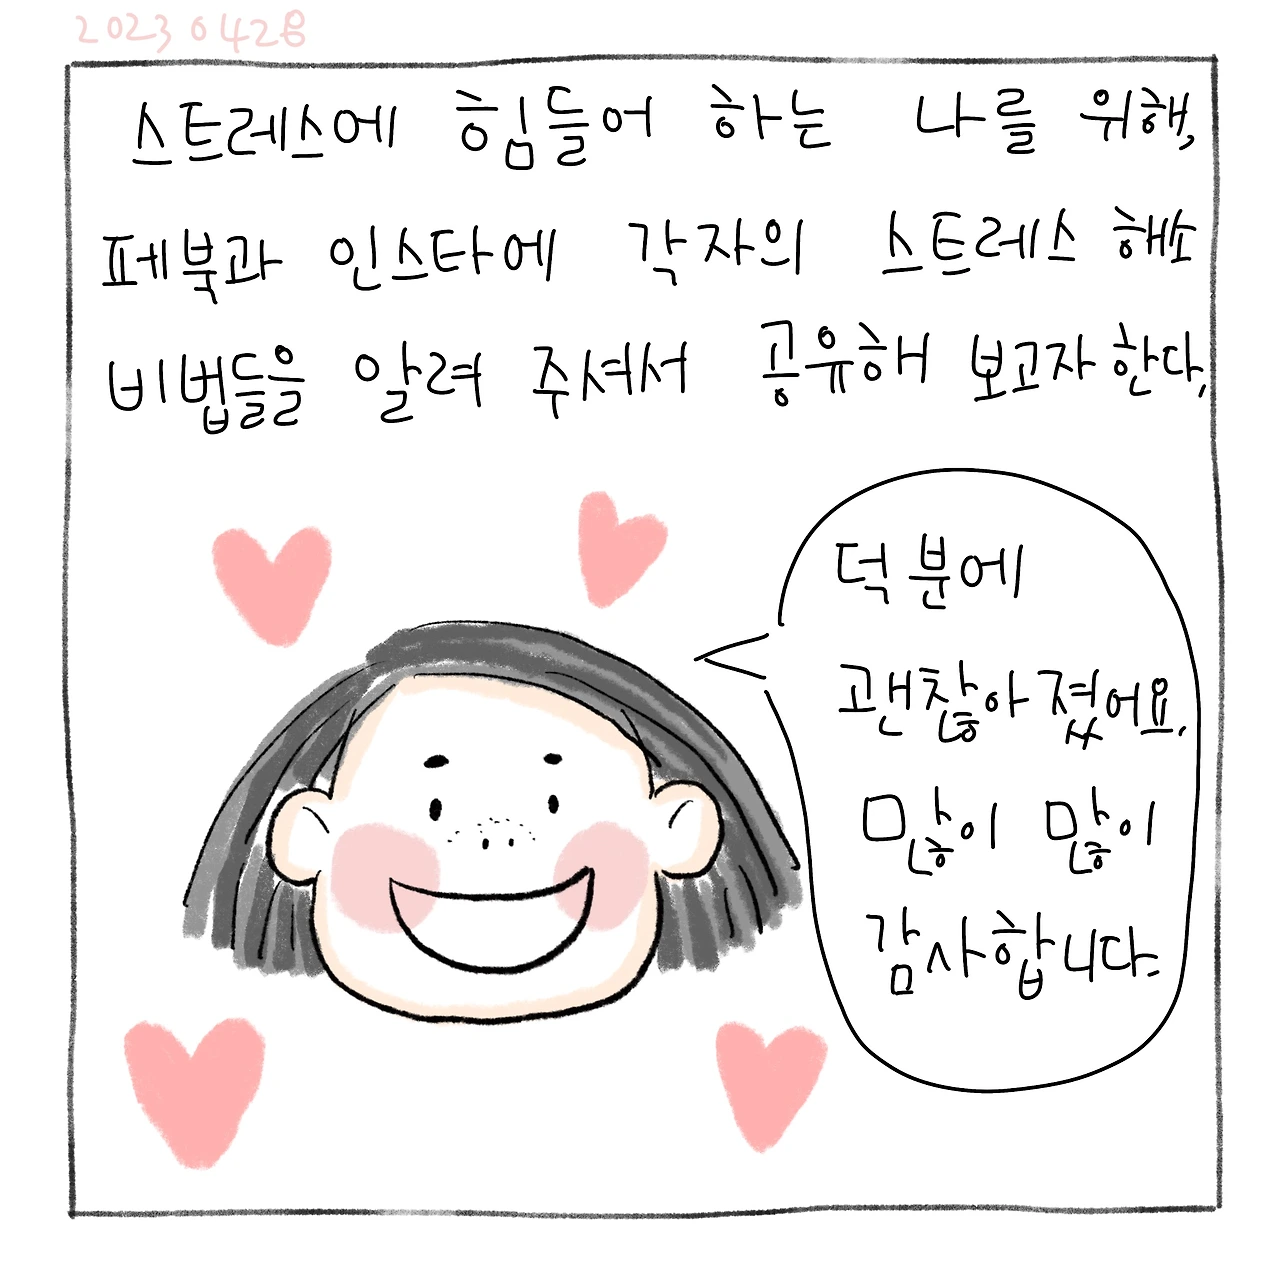 20230428
스트레스에 힘들어 하는 나를 위해,
페북과 인스타에 각자의 스트레스 해소
비법들을 알려 주셔서 공유해 보고자 한다,
덕분에
괜찮아졌어요.
많이 많이
감사합니다.